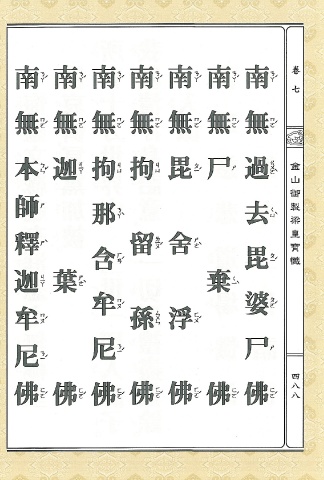 卷七
金山御製梁皇寶懺
四八八
南無過去毘婆尸佛
南無尸棄佛
南無毘舍浮佛
南無拘留孫佛
南無拘那含牟尼佛
南無迦葉佛
南無本師釋迦牟尼佛